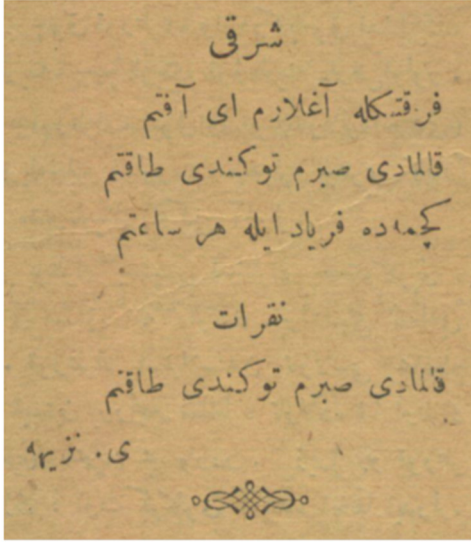 شرقی
فرقتکله آغلارم ای آفتم
قالمادی صبرم توکندی طاقتم
کچمه‌ده فریاد ایله هر ساعتم
نقرات
قالمادی صبرم توکندی طاقتم
ی. نزیهه